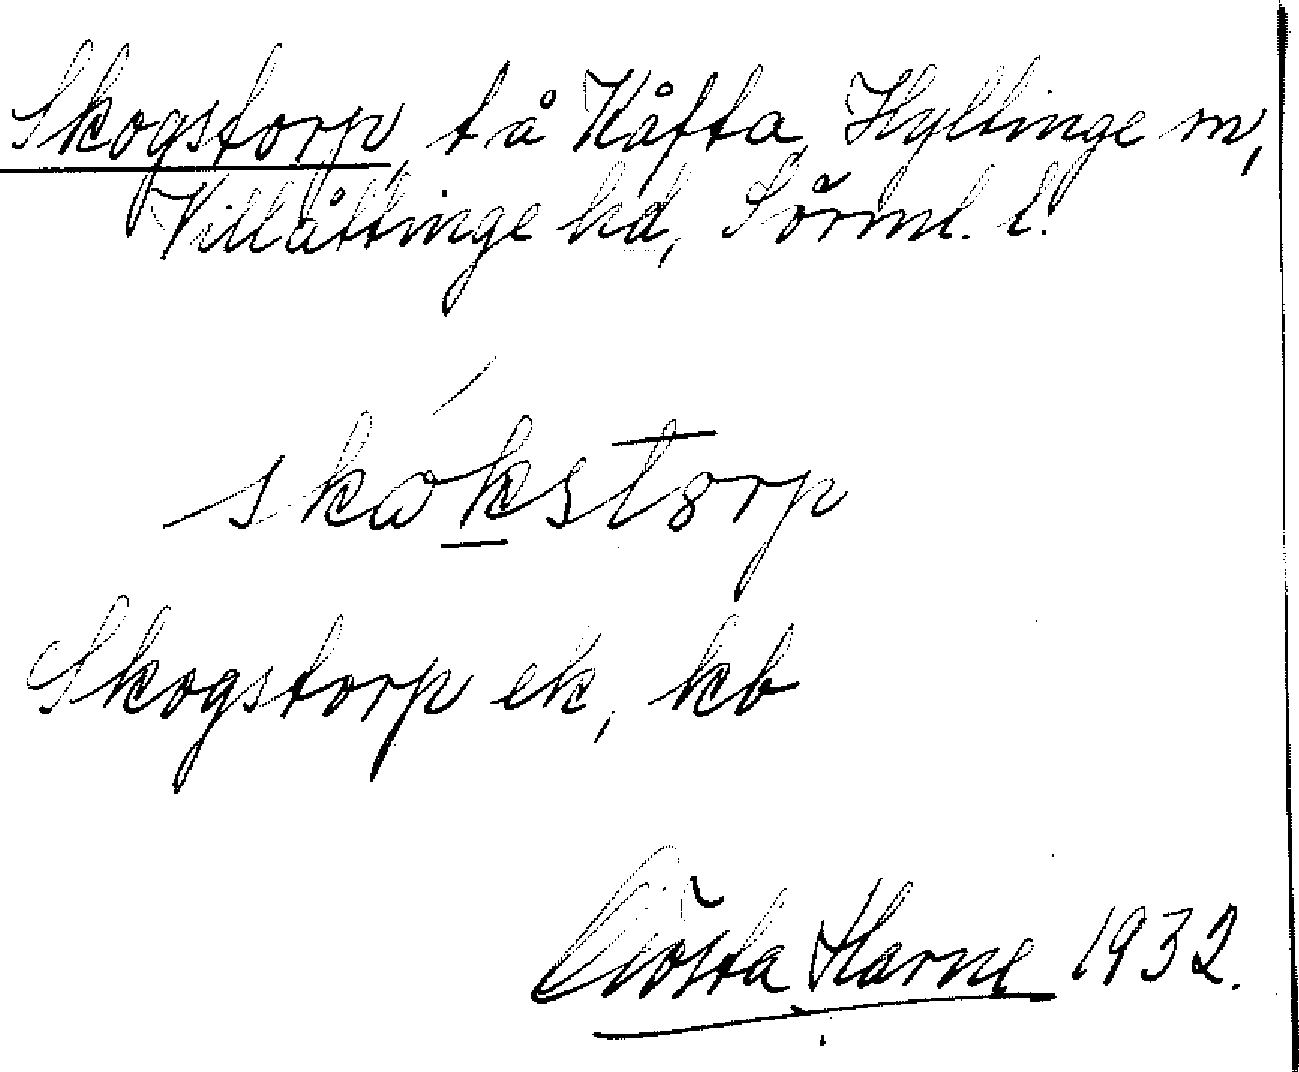 Skogstorp, t å Kåfta, Hyltinge sn,
Villåttinge hd, Sörml. l.
skωkstorp
Skogstorp ek, kb
Gösta Harne 1932.